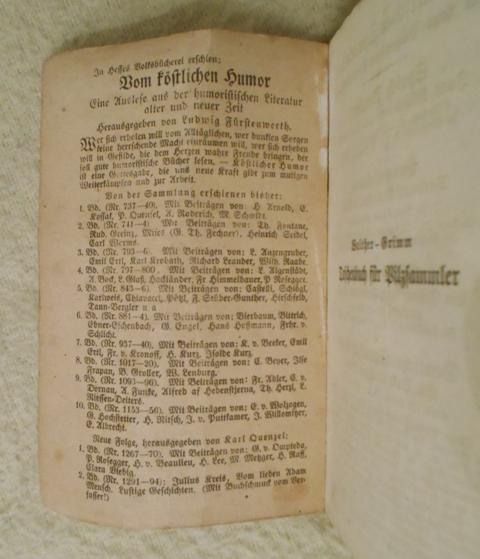 In Hesses Volksbücherei erschien:
Vom köstlichen Humor
Eine Auslese aus der humoristischen Literatur
alter und neuer Zeit
Herausgegeben von Ludwig Fürstenwerth.
Wer sich erholen will vom Alltäglichen, wer dunklen Sorgen
keine herrschende Macht einräumen will, wer sich erheben
will in Gefilde, die dem Herzen wahre Freude bringen, der
soll gute humoristische Bücher lesen. — Köstlicher Humor
ist eine Gottesgabe, die uns neue Kraft gibt zum mutigen
Weiterkämpfen und zur Arbeit.
Von der Sammlung erschienen bisher:
1. Bd. (Nr. 737—40). Mit Beiträgen von: H. Arnold, E.
Kossak, P. Quensel, A. Roderich, M. Schmidt.
2. Bd. (Nr. 741—4) Mit Beiträgen von: Th. Fontane,
Rud. Greinz, Mises (G. Th. Fechner), Heinrich Seidel,
Carl Worms.
3. Bd. (Nr. 793—6). Mit Beiträgen von: L. Anzengruber,
Emil Ertl, Karl Krobath, Richard Leander, Wilh. Raabe.
4. Bd. (Nr. 797—800). Mit Beiträgen von: L. Algenstädt,
A. Bock, L. Glaß, Hackländer, Fr. Himmelbauer, P. Rosegger.
5. Bd. (Nr. 843—6). Mit Beiträgen von: Castelli, Schlögl,
Karlweis, Chiavacci, Pötzl, F. Stüber-Gunther, Hirschfeld,
Tann-Bergler u a
6. Bd. (Nr. 881—4). Mit Beiträgen von: Bierbaum, Bittrich,
Ebner-Eschenbach, G. Engel, Hans Hoffmann, Frhr. v.
Schlicht.
7. Bd. (Nr. 937—40). Mit Beiträgen von: K. v. Beeker, Emil
Ertl, Fr. v. Kronoff, H. Kurz, Isolde Kurz.
8. Bd. (Nr. 1017—20). Mit Beiträgen von: C. Beyer, Ilse
Frapan, B. Groller, W. Lenburg.
9. Bd. (Nr. 1093—96). Mit Beiträgen von: Fr. Adler, C. v.
Dornau, A. Funke, Alfred af Hedenstjerna, Th. Herzl, L.
Niessen-Deiters.
10. Bd. (Nr. 1153—56). Mit Beiträgen von: E. v. Wolzogen,
G. Hochstetter, H. Nitsch, J. v. Puttkamer, J. Willomitzer,
E. Albrecht.
Neue Folge, herausgegeben von Karl Quenzel:
1. Bd. (Nr. 1267—70). Mit Beiträgen von: G. v. Ompteda,
P. Rosegger, H. v. Beaulieu, H. Lee, M. Metzger, H. Raff,
Clara Viebig.
2. Bd. (Nr. 1291—94): Julius Kreis, Vom lieben Adam
Mensch. Lustige Geschichten. (Mit Buchschmuck vom Ver-
fasser!)
Walther-Grimm
Taschenbuch für Pilzsammler